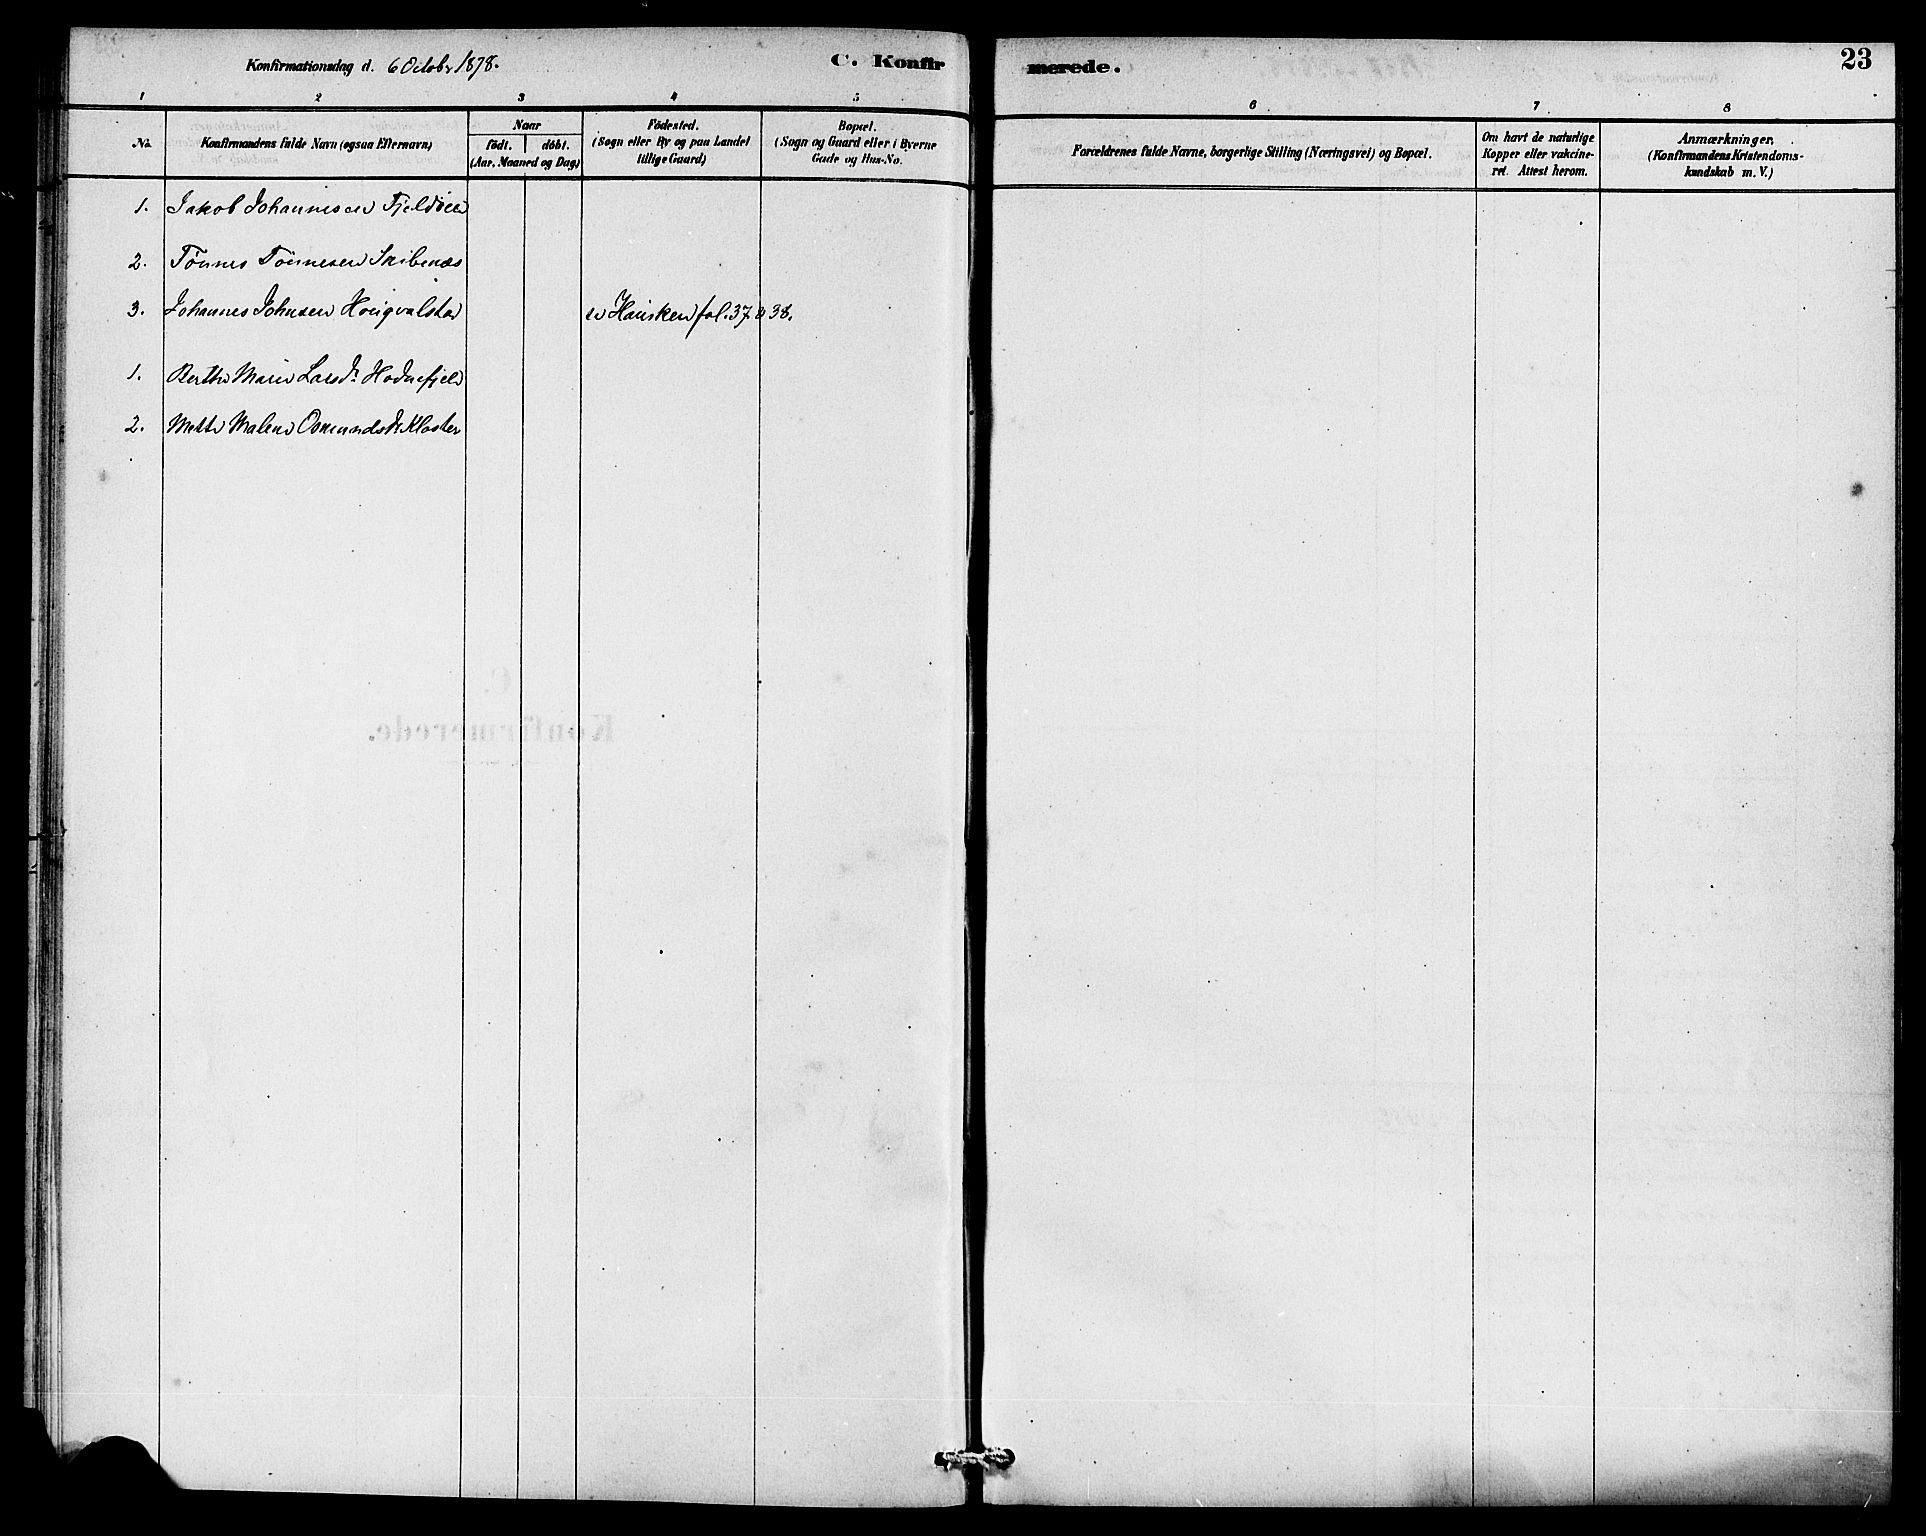 Konfirmationsdag d. 6 Octobr 1878.
C. Konfir
merede.
23
1 2 3 4 5 6 7 8
No.
Konfirmandens fulde Navn (ogsaa Efternavn)
Naar
födt. döbt.
(Aar, Maaned og Dag)
Födested.
(Sogn eller By og paa Landet
tillige Gaard)
Bopæl.
(Sogn og Gaard eller i Byerne
Gade og Hus-No.
Forældrenes fulde Navne, borgerlige Stilling (Næringsvei) og Bopæl.
Om havt de naturlige
Kopper eller vakcine-
ret. Attest herom.
Anmærkninger.
(Konfirmandens Kristendoms-
kundskab m. V.)
1. Jakob Johannesen Fjeldöen
2. Tönnes Tönnesen Skibenæs
3. Johannes Johnsen Hougvalstad
Hausken fol. 37 & 38.
1. Berthe Marie Larsdr. Hodnefjeld
2. Mette Malene Osmundsdr. Kloster